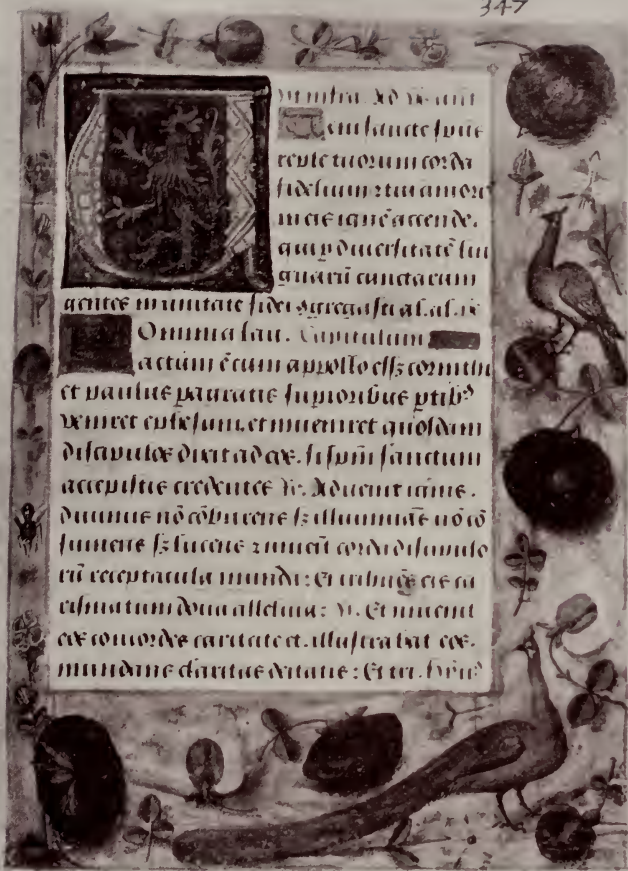 347
ut infra. Ad ve ant
Veni sancte spūs
reple tuorum corda
fidelium ⁊ tui amoris
in eis ignē accende.
qui p diuersitatē lin
guarū cunctarum
gentes in unitate fidei ɔgregasti al. al. ps
Omnia lau. Capitulum
actum ē cum appollo eēt corinthi
et paulus pagratis supioribus ptibꝰ
veniret ephesum. et inueniret quosdam
discipulos dixit ad eos. si spm̄ sanctum
accepistis credentes ℟. Aduenit ignis.
Diuinus nō cōburens sꝫ illuminās nō cō
sumens sꝫ lucens ⁊ inuēit corda discipulo
rū receptacula munda: Et tribuēs eis ca
rismatum dona alleluia: ℣. Et inuenit
eos concordes caritate et. illustrabat eos.
mundans claritas deitatis: Et tri.